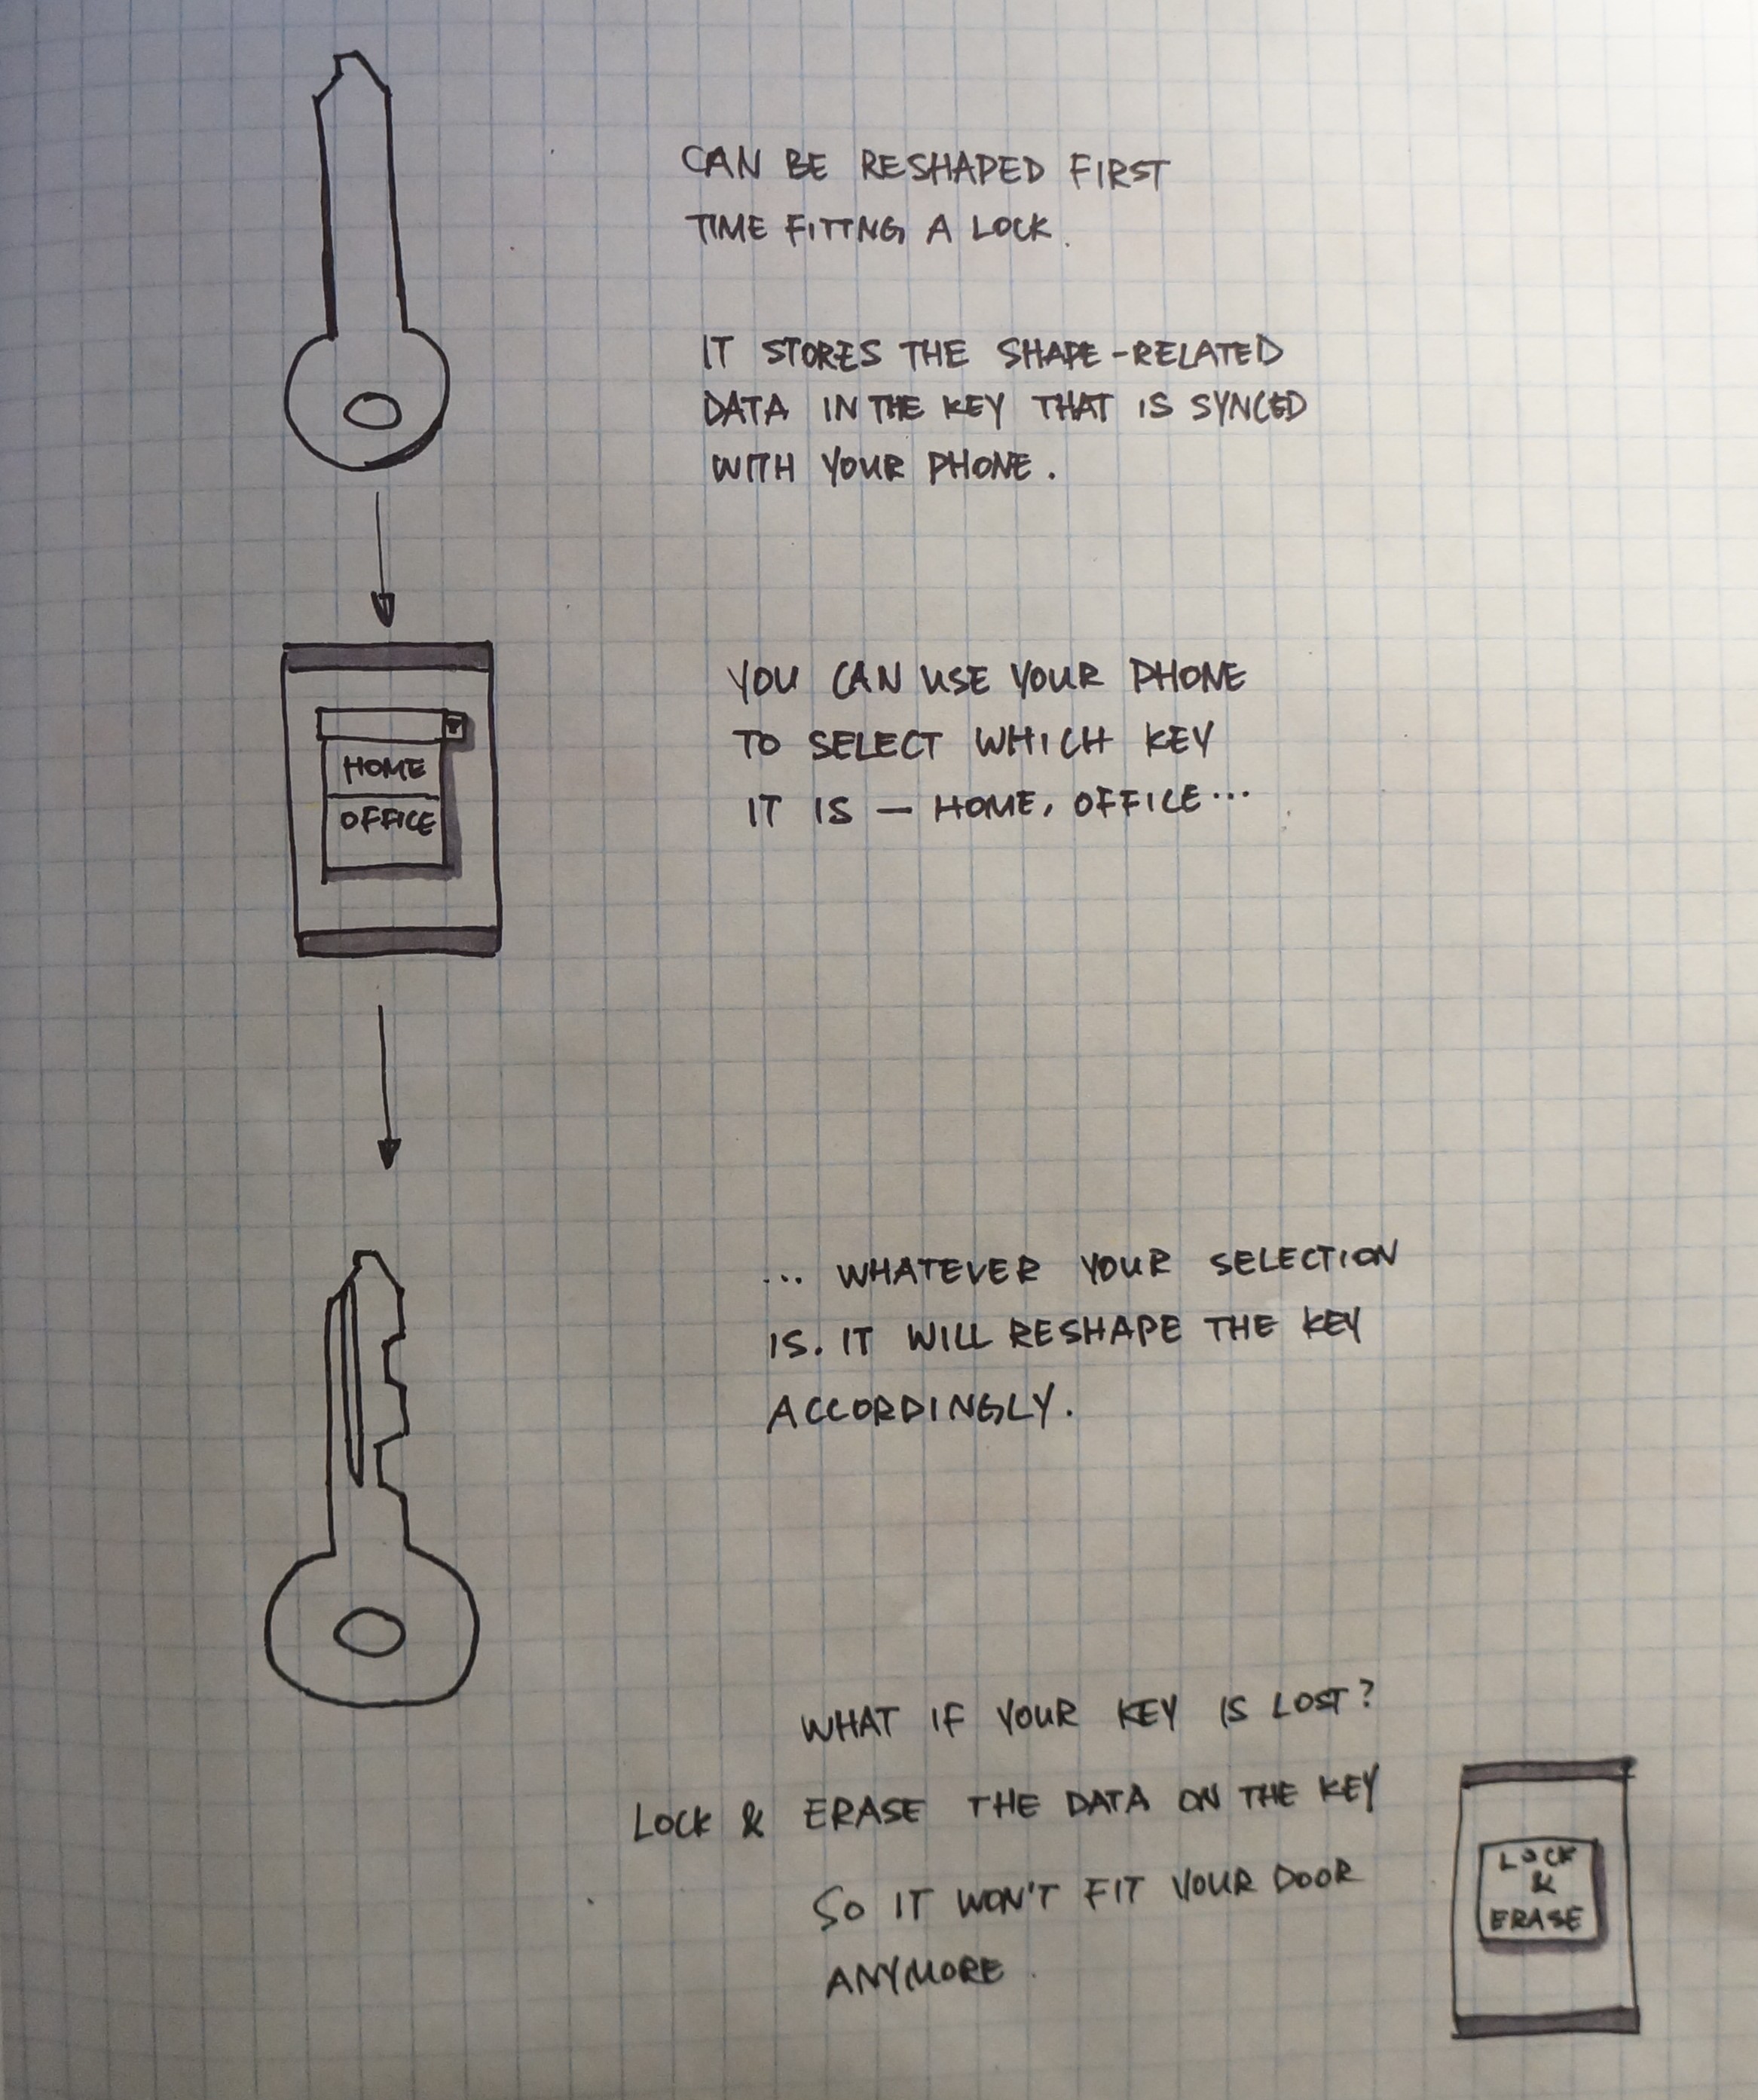 CAN BE RESHAPED FIRST
TIME FITTNG A LOCK.
IT STORES THE SHAPE-RELATED
DATA IN THE KEY THAT IS SYNCED
WITH YOUR PHONE.
HOME
OFFICE
YOU CAN USE YOUR PHONE
TO SELECT WHICH KEY
IT IS — HOME, OFFICE...
... WHATEVER YOUR SELECTION
IS. IT WILL RESHAPE THE KEY
ACCORDINGLY.
WHAT IF YOUR KEY IS LOST?
LOCK & ERASE THE DATA ON THE KEY
SO IT WON'T FIT YOUR DOOR
ANYMORE.
LOCK
&
ERASE